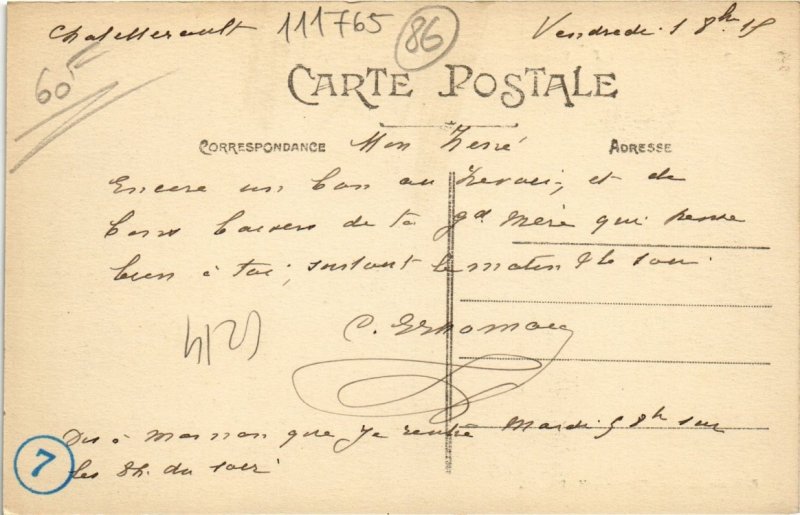 Chatellerault 111765 86 Vendredi 1 8bre 15
60F
CARTE POSTALE
CORRESPONDANCE ADRESSE
Mon René
Encore un bon au revoir, et de
bons baisers de ta gd Mère qui pense
bien à toi, surtout le matin & le soir.
4/25
C.
Dis à Maman que je rentre Mardi 5 8bre sur
les 8h. du soir
7